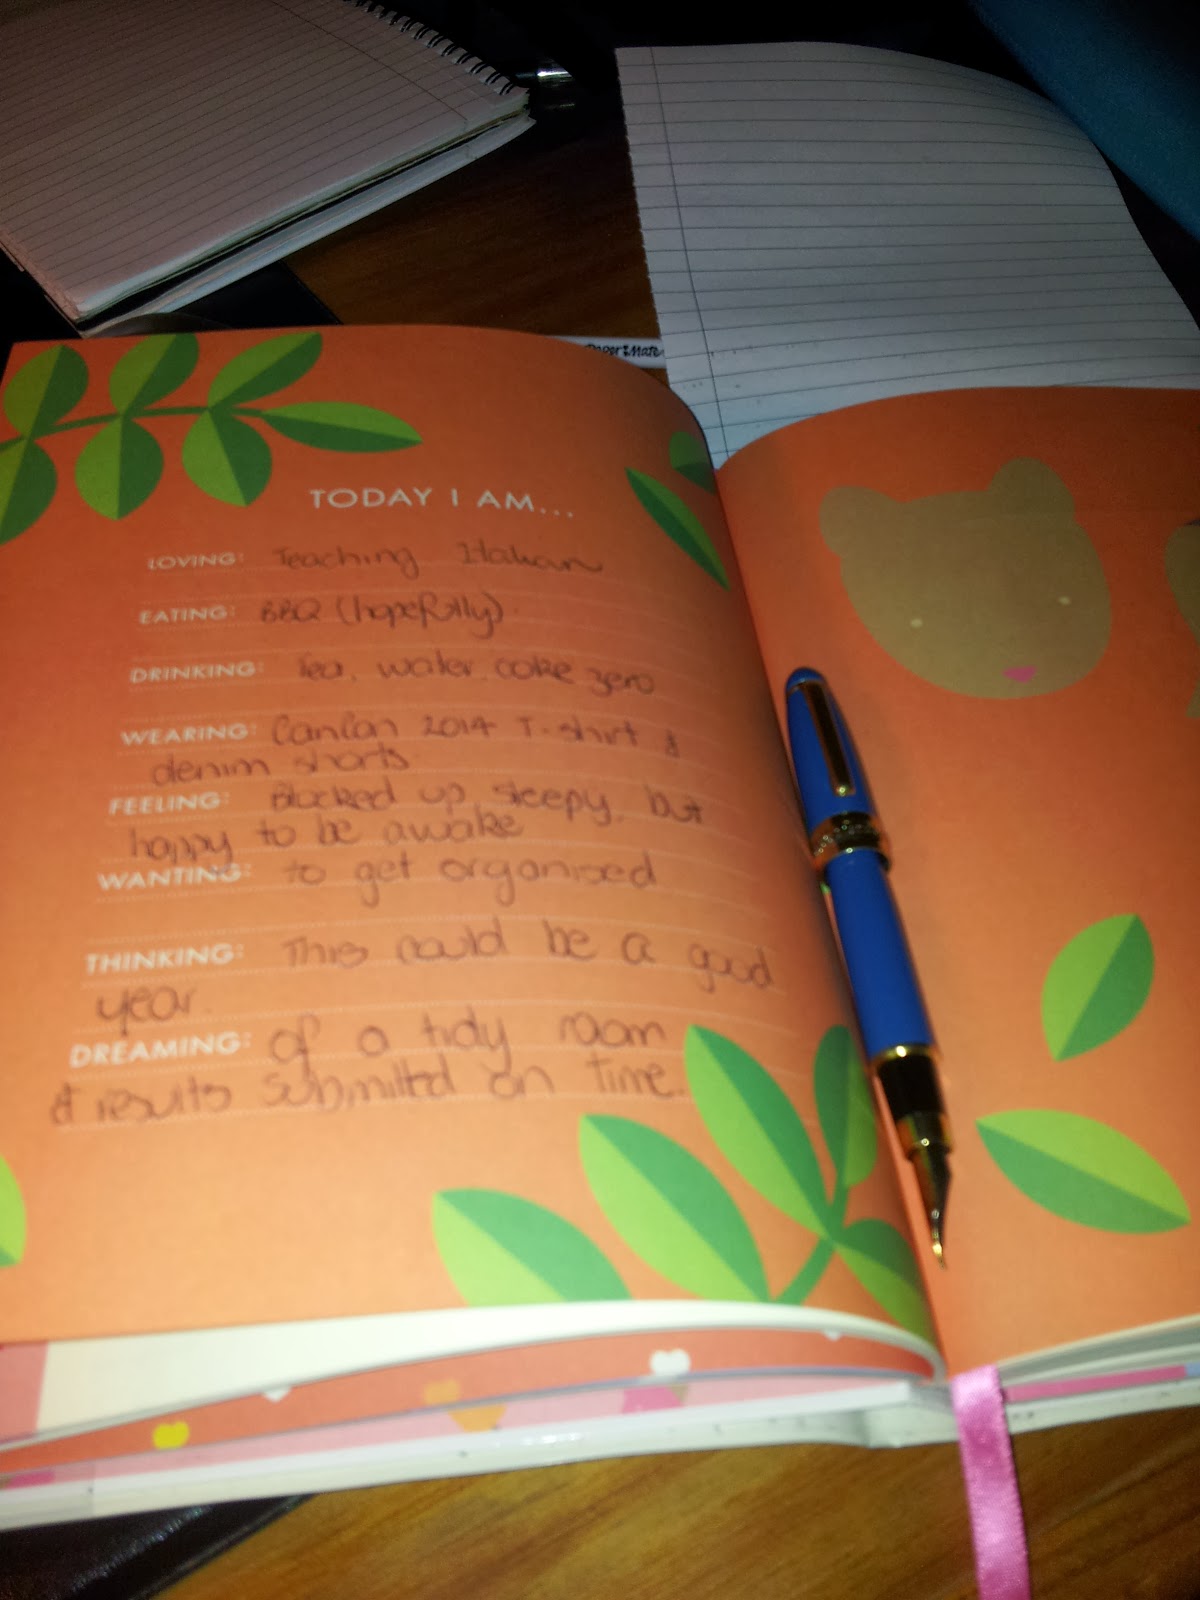 Paper Mate
TODAY I AM...
LOVING: Teaching Italian
EATING: BBQ (hopefully).
DRINKING: Tea, water, coke zero
WEARING: CanCan 2014 T-shirt &
denim shorts
FEELING: Blocked up, sleepy, but
happy to be awake
WANTING: to get organised
THINKING: This could be a good
year.
DREAMING: of a tidy room
& results submitted on time.